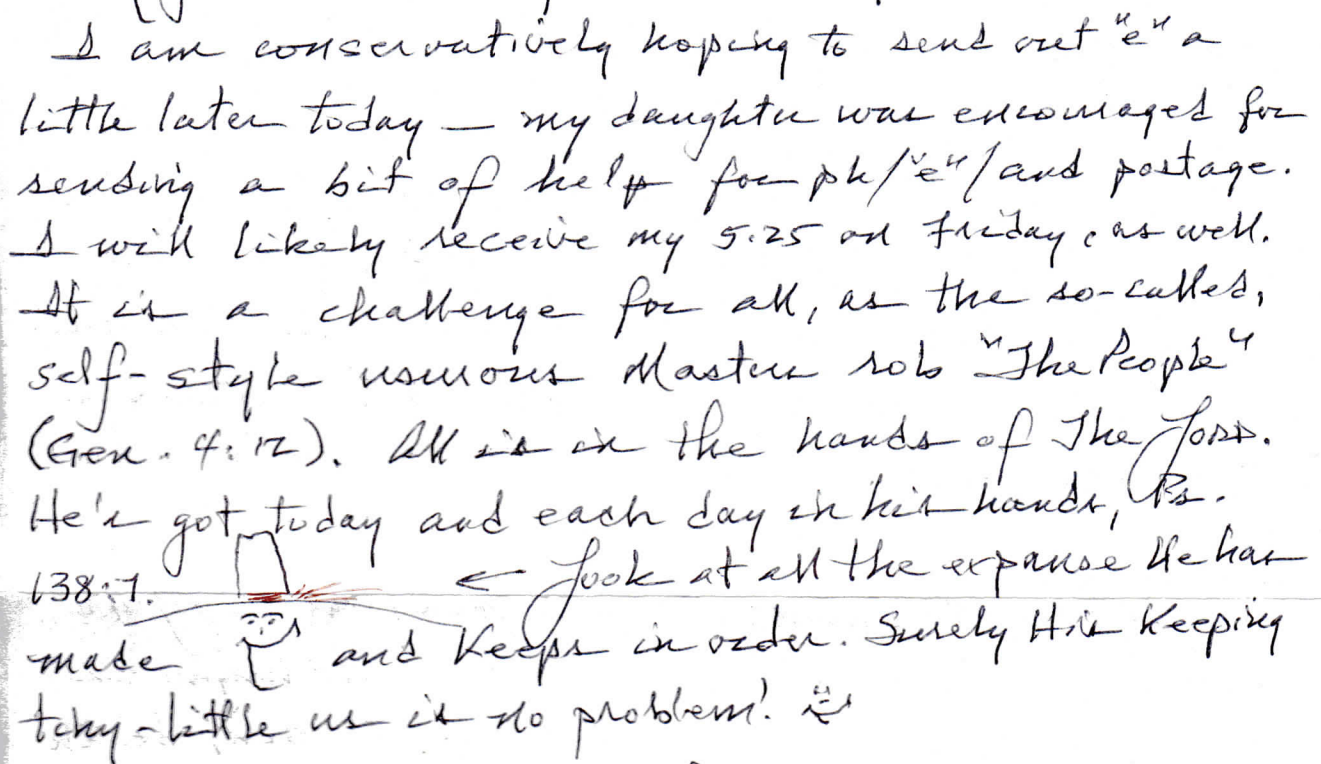 I am conservatively hoping to send out "e" a
little later today — my daughter was encouraged for
sending a bit of help for ph/"e"/and postage.
I will likely receive my 5.25 on Friday, as well.
It is a challenge for all, as the so-called,
self-style usurous Master rob "The People"
(Gen. 4:12). All is in the hands of The Lord.
He's got today and each day in his hands, Ps.
138:7. ← Look at all the expanse He has
made and Keeps in order. Surely His Keeping
tiny-little us is no problem!